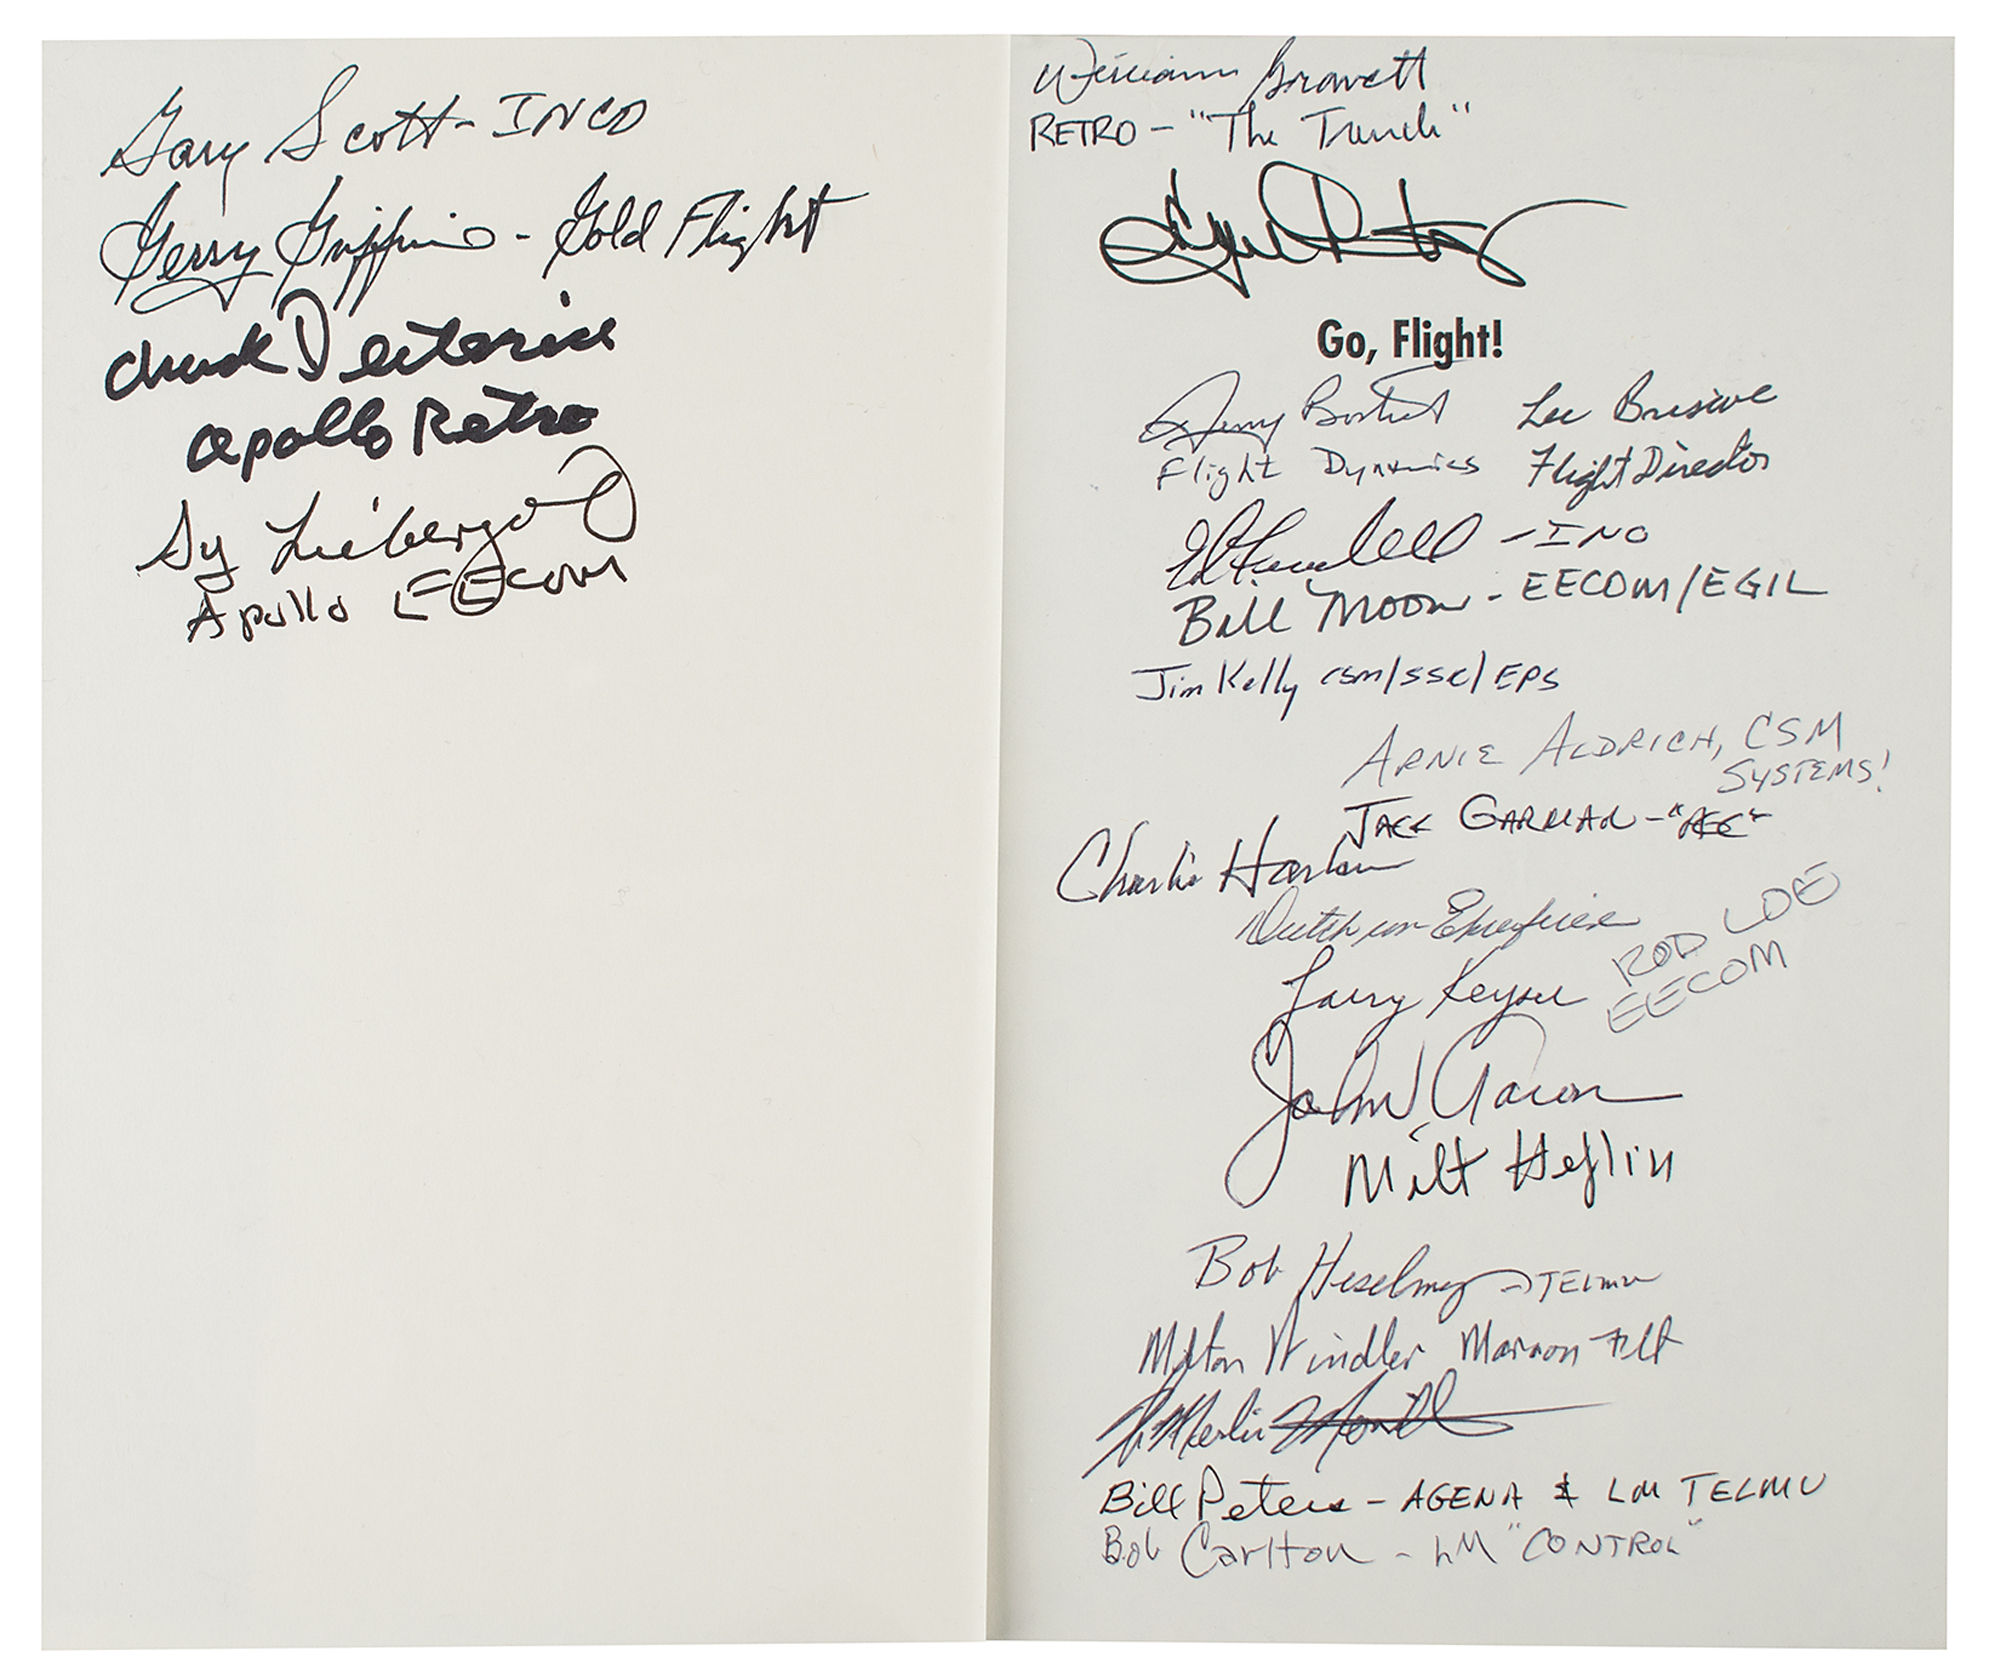 Gary Scott - INCO
Gerry Griffin - Gold Flight
Chuck Deiterich
Apollo Retro
Sy Liebergot
Apollo EECOM
William Gravett
RETRO - "The Trench"
Go, Flight!
Jerry Bostick Lee Briscoe
Flight Dynamics Flight Director
Ed Fendell - INCO
Bill Moon - EECOM/EGIL
Jim Kelly CSM/SSR/EPS
ARNIE ALDRICH, CSM
SYSTEMS!
JACK GARMAN -
Charlie Harlan
Dutch von Ehrenfried
ROD LOE
EECOM
Larry Keyser
John W Aaron
Milt Heflin
Bob Heselmeyer TELMU
Milton Windler Maroon Flt
Merlin Merritt
Bill Peters - AGENA & LM TELMU
Bob Carlton - LM "CONTROL"